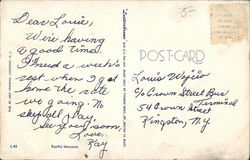 Dear Louie,
We're having
a good time.
I need a week's
rest when I get
home the rate
we going. No
sleep all day.
See you soon
Love,
Ray
POST CARD
Louis Wyció
c/o Crown Street Bus
Terminal
54 Crown Street
Kingston, N.Y
L-43
Restful Moments